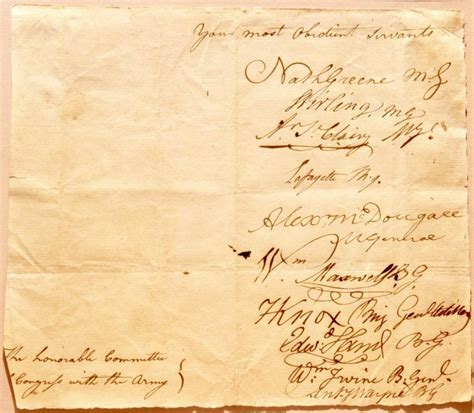 Your most Obedient Servants
Nath Greene M.G
Stirling, MG
Ar. St. Clair, M.G.
Lafayette M.G.
Alexr McDougall
M General
Wm Maxwell B.G
HKnox Brig Genl Artillery
Edwd Hand B.G.
Wm Irvine B. Genl.
Anty Wayne BG
The honorable Committee
Congress with the Army